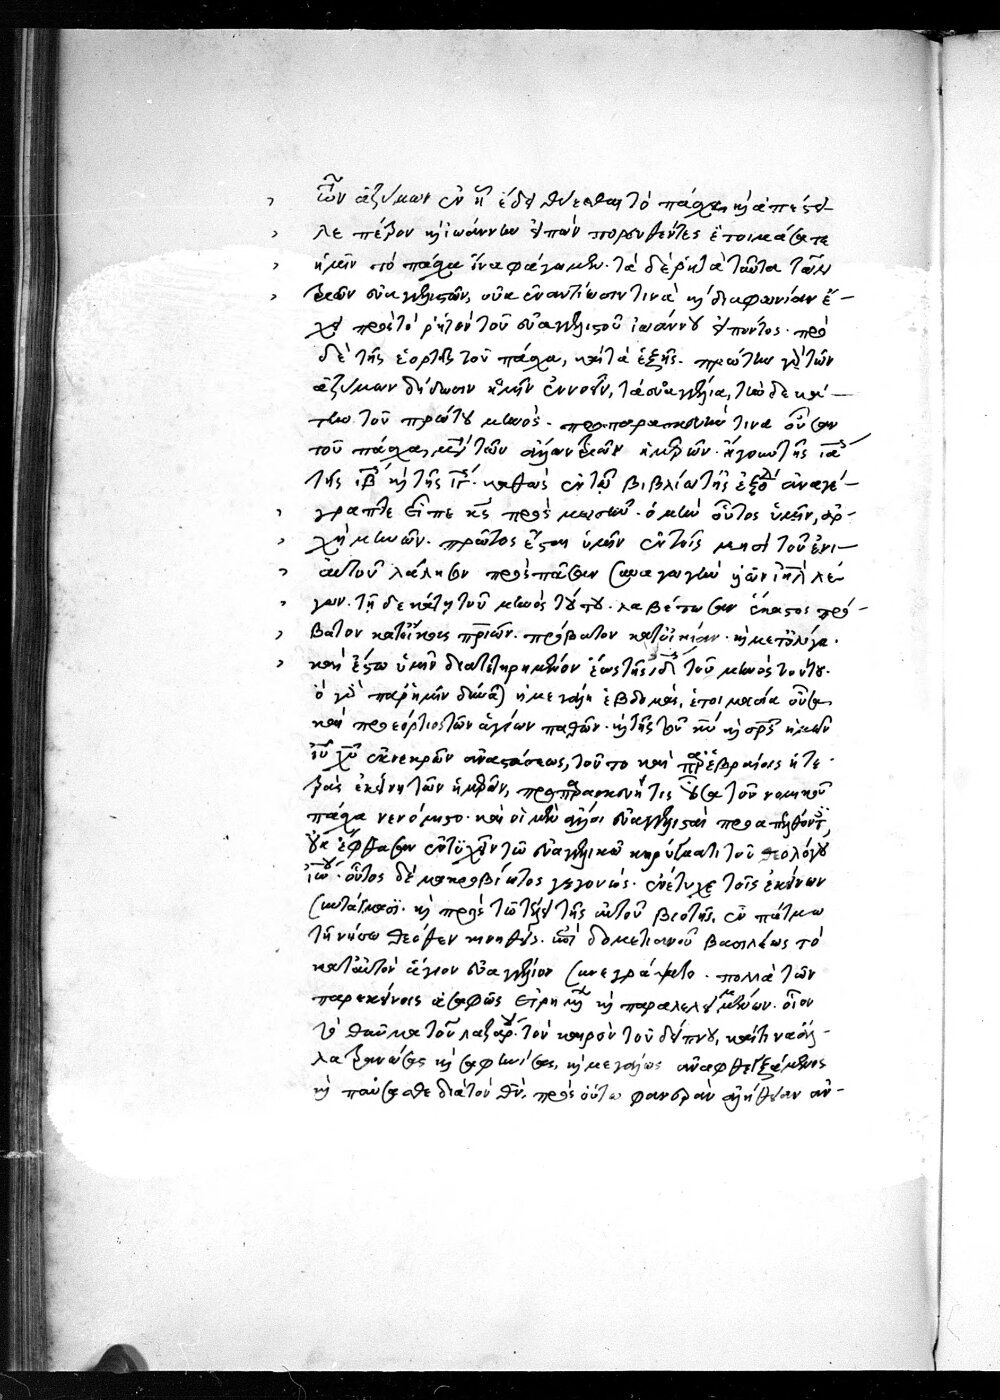 τῶν ἀζύμων ἐν ᾗ ἔδει θύεσθαι τὸ πάσχα, καὶ ἀπέστει-
λε πέτρον καὶ ἰωάννην εἰπὼν πορευθέντες ἑτοιμάσατε
ἡμῖν τὸ πάσχα ἵνα φάγωμεν. τὰ δὲ ῥητὰ ταῦτα τῶν
τριῶν εὐαγγελιστῶν, οὐκ ἐναντίωσιν τινὰ καὶ διαφωνίαν ἔ-
χει πρὸς τὸ ῥητὸν τοῦ εὐαγγελιστοῦ ἰωάννου εἰπόντος. πρὸ
δὲ τῆς ἑορτῆς τοῦ πάσχα, καὶ τὰ ἑξῆς. πρώτην γὰρ τῶν
ἀζύμων δίδωσιν ἡμῖν ἐννοεῖν, τὰ εὐαγγέλια, τὴν δεκά-
την τοῦ πρώτου μηνός. προπαρασκευή τινα οὖσαν
τοῦ πάσχα, μετὰ τῶν ἄλλων τριῶν ἡμερῶν. ἤγουν τῆς ια
τῆς ιβ καὶ τῆς ιγ. καθὼς ἐν τῷ βιβλίω τῆς ἐξόδου ἀναγέ-
γραπται εἶπε κς πρὸς μωσῆν. ὁ μὴν οὗτος ὑμῖν, ἀρ-
χὴ μηνῶν. πρῶτος ἔσται ὑμῖν ἐν τοῖς μησὶ τοῦ ἐνι-
αυτοῦ λάλησον πρὸς πᾶσαν συναγωγὴν υἱῶν ιηλ λέ-
γων. τῇ δεκάτῃ τοῦ μηνὸς τούτου. λαβέτωσαν ἕκαστος πρό-
βατον κατ' οἴκους πριῶν. πρόβατον κατ' οἰκίαν. καὶ μετ' ὀλίγα.
καὶ ἔσται ὑμῖν διατετηρημένον ἕως τῆς ιδ τοῦ μηνὸς τούτου.
ὁ γὰρ παρ' ἡμῖν δύναται ἡ μεγάλη ἑβδομάς, ἑτοιμασία οὖσα,
καὶ προεόρτιος τῶν ἁγίων παθῶν. καὶ τῆς τοῦ κυ καὶ σρς ἡμῶν
ιυ χυ ἐκ νεκρῶν ἀναστάσεως, τοῦτο καὶ παρ' ἑβραίοις ἡ τε-
τρὰς ἐκείνη τῶν ἡμερῶν, προπαρασκευή τις οὖσα τοῦ νομικοῦ
πάσχα νενόμιστο. καὶ οἱ μὲν ἄλλοι εὐαγγελισταὶ προαπελθόντες,
οὐκ ἔφθασαν ἐντυχεῖν τῶ εὐαγγελικῶ κηρύγματι τοῦ θεολόγου
ιω. οὗτος δὲ μακροβίωτος γεγονώς. ἐνέτυχε τοῖς ἐκείνων
συντάγμασι. καὶ πρὸς τῶ τέλει τῆς αὐτοῦ βιοτῆς, ἐν πάτμω
τῇ νήσω θεόθεν κινηθεὶς. ἐπὶ δομετιανοῦ βασιλέως τὸ
κατ' αὐτὸν ἅγιον εὐαγγέλιον συνεγράψατο. πολλὰ τῶν
παρ' ἐκείνοις ἀσαφῶς εἰρημένων καὶ παραλελειμμένων. οἷον
τὸ θαῦμα τοῦ λαζάρου. τὸν καιρὸν τοῦ δείπνου, καί τινα ἄλ-
λα ξανώσας καὶ σαφηνίσας, καὶ μεγάλως ἀναφθεγξάμενος
καὶ παύσασθε διὰ τὸν θν, πρὸς οὕτω φανερὰν ἀλήθειαν ἀν-